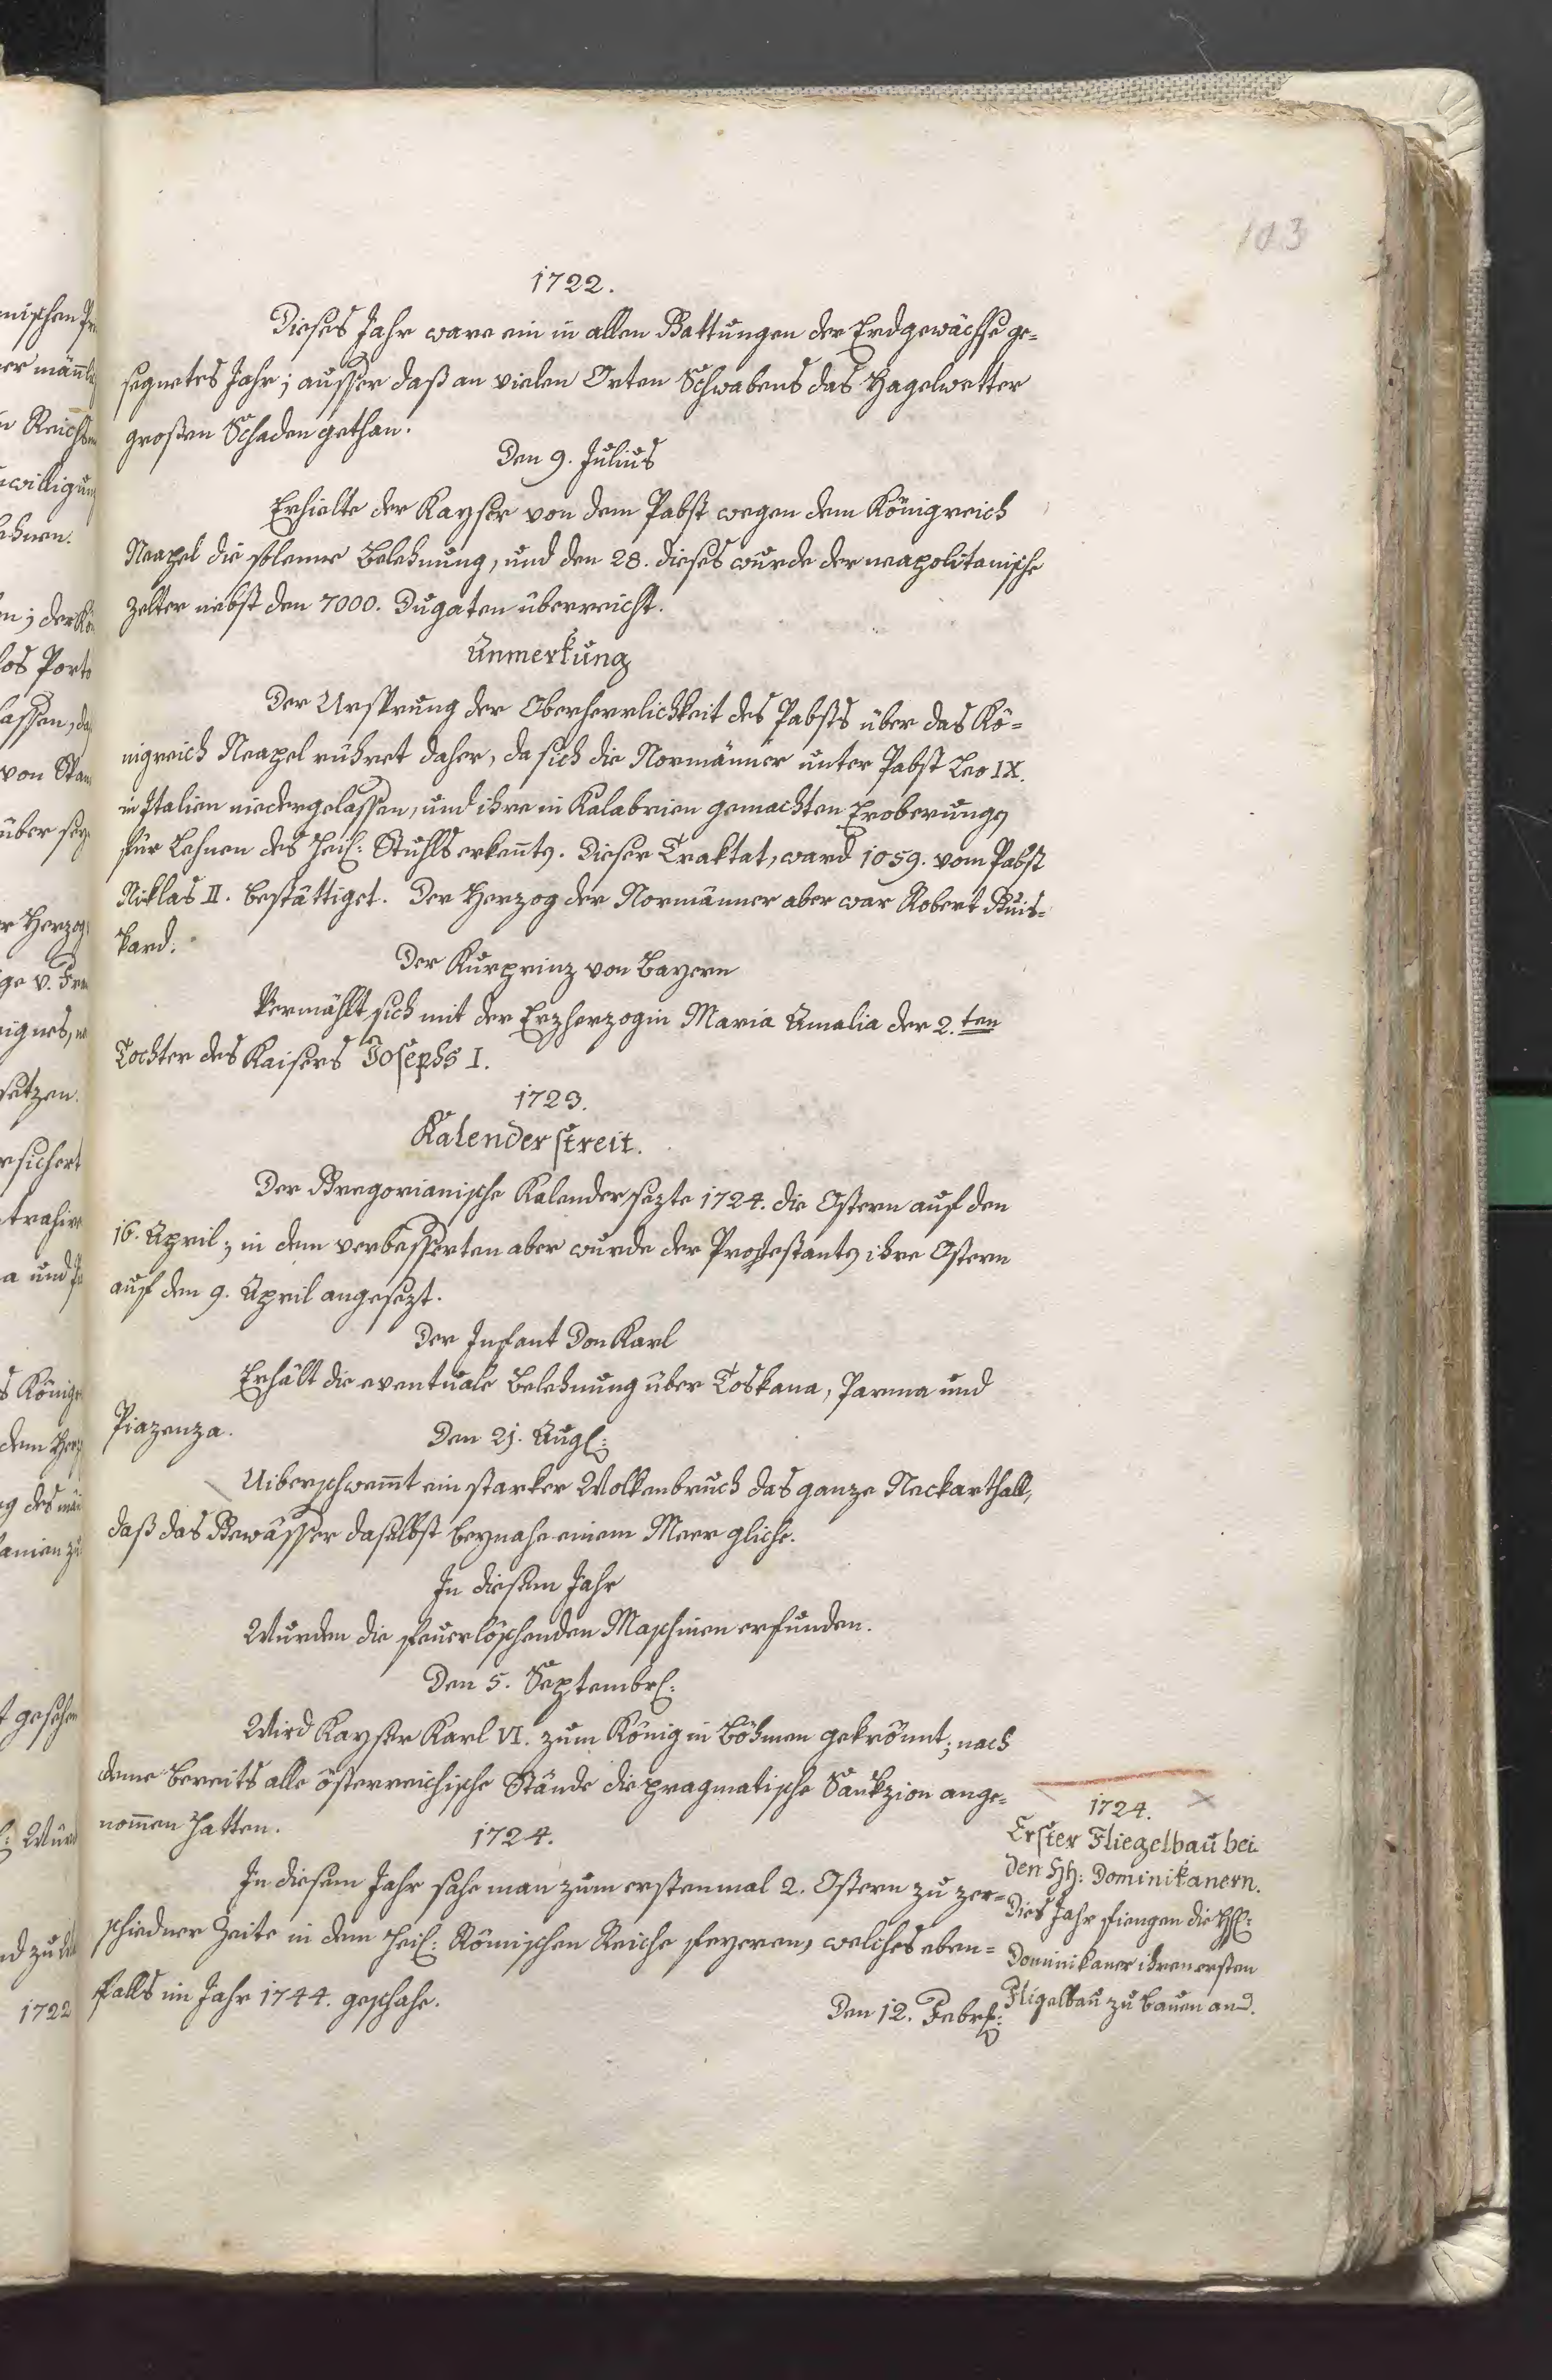 103
1722.
Dieses Jahr ware ein in allen Gattungen der Erdgewächse ge=
segnetes Jahr; ausser daß an vielen Orten Schwabens das Hagelwetter
großen Schaden gethan.
Den 9. Julius
Erhielte der Kayser von dem Pabst wegen dem Königreich
Neapel die solenne Belehnung, und den 28. dieses wurde der neapolitanische
Zelter nebst den 7000. Dugaten überreicht.
Anmerkung
Der Ursprung der Oberherrlichkeit des Pabsts über das Kö=
nigreich Neapel rühret daher, da sich die Normänner unter Pabst Leo IX.
in Italien niedergelassen, und ihre in Kalabrien gemachten Eroberungen
für Lehnen des Heil: Stuhls erkennten. Dieser Traktat, ward 1059. vom Pabst
Niklas II. bestättiget. Der Herzog der Normänner aber war Robert Guis=
kard.
Der Kurprinz von Bayern
Vermählt sich mit der Erzherzogin Maria Amalia der 2.ten
Tochter des Kaisers Josephs I.
1723.
Kalenderstreit.
Der Gregorianische Kalender sezte 1724. die Ostern auf den
16. April; in dem verbesserten aber wurde der Protestanten ihre Ostern
auf den 9. April angesezt.
Der Infant Don Karl
Erhält die eventuale Belehnung über Toskana, Parma und
Piazenza.
Den 21. Aug:
Uiberschwemmt ein starker Wolkenbruch das ganze Neckarthall,
daß das Gewässer daselbst beynahe einem Meer gliche.
In diesem Jahr
Wurden die feuerlöschenden Maschinen erfunden.
Den 5. Septembr:
Wird Kayser Karl VI. zum König in Böhmen gekrönnt; nach
deme bereits alle österreichische Stände die pragmatische Sankzion ange=
nommen hatten.
1724.
In diesem Jahr sahe man zum erstenmal 2. Ostern zu zer=
schiedner Zeite in dem Heil: Römischen Reiche feyeren, welches eben=
falls im Jahr 1744. geschahe.
Den 12. Febr:
1724.
Erster Fliegelbau bei
den Hh: Dominikanern.
Dies Jahr fiengen die Hh:
Dominikaner ihren ersten
Fligelbau zu bauen an.